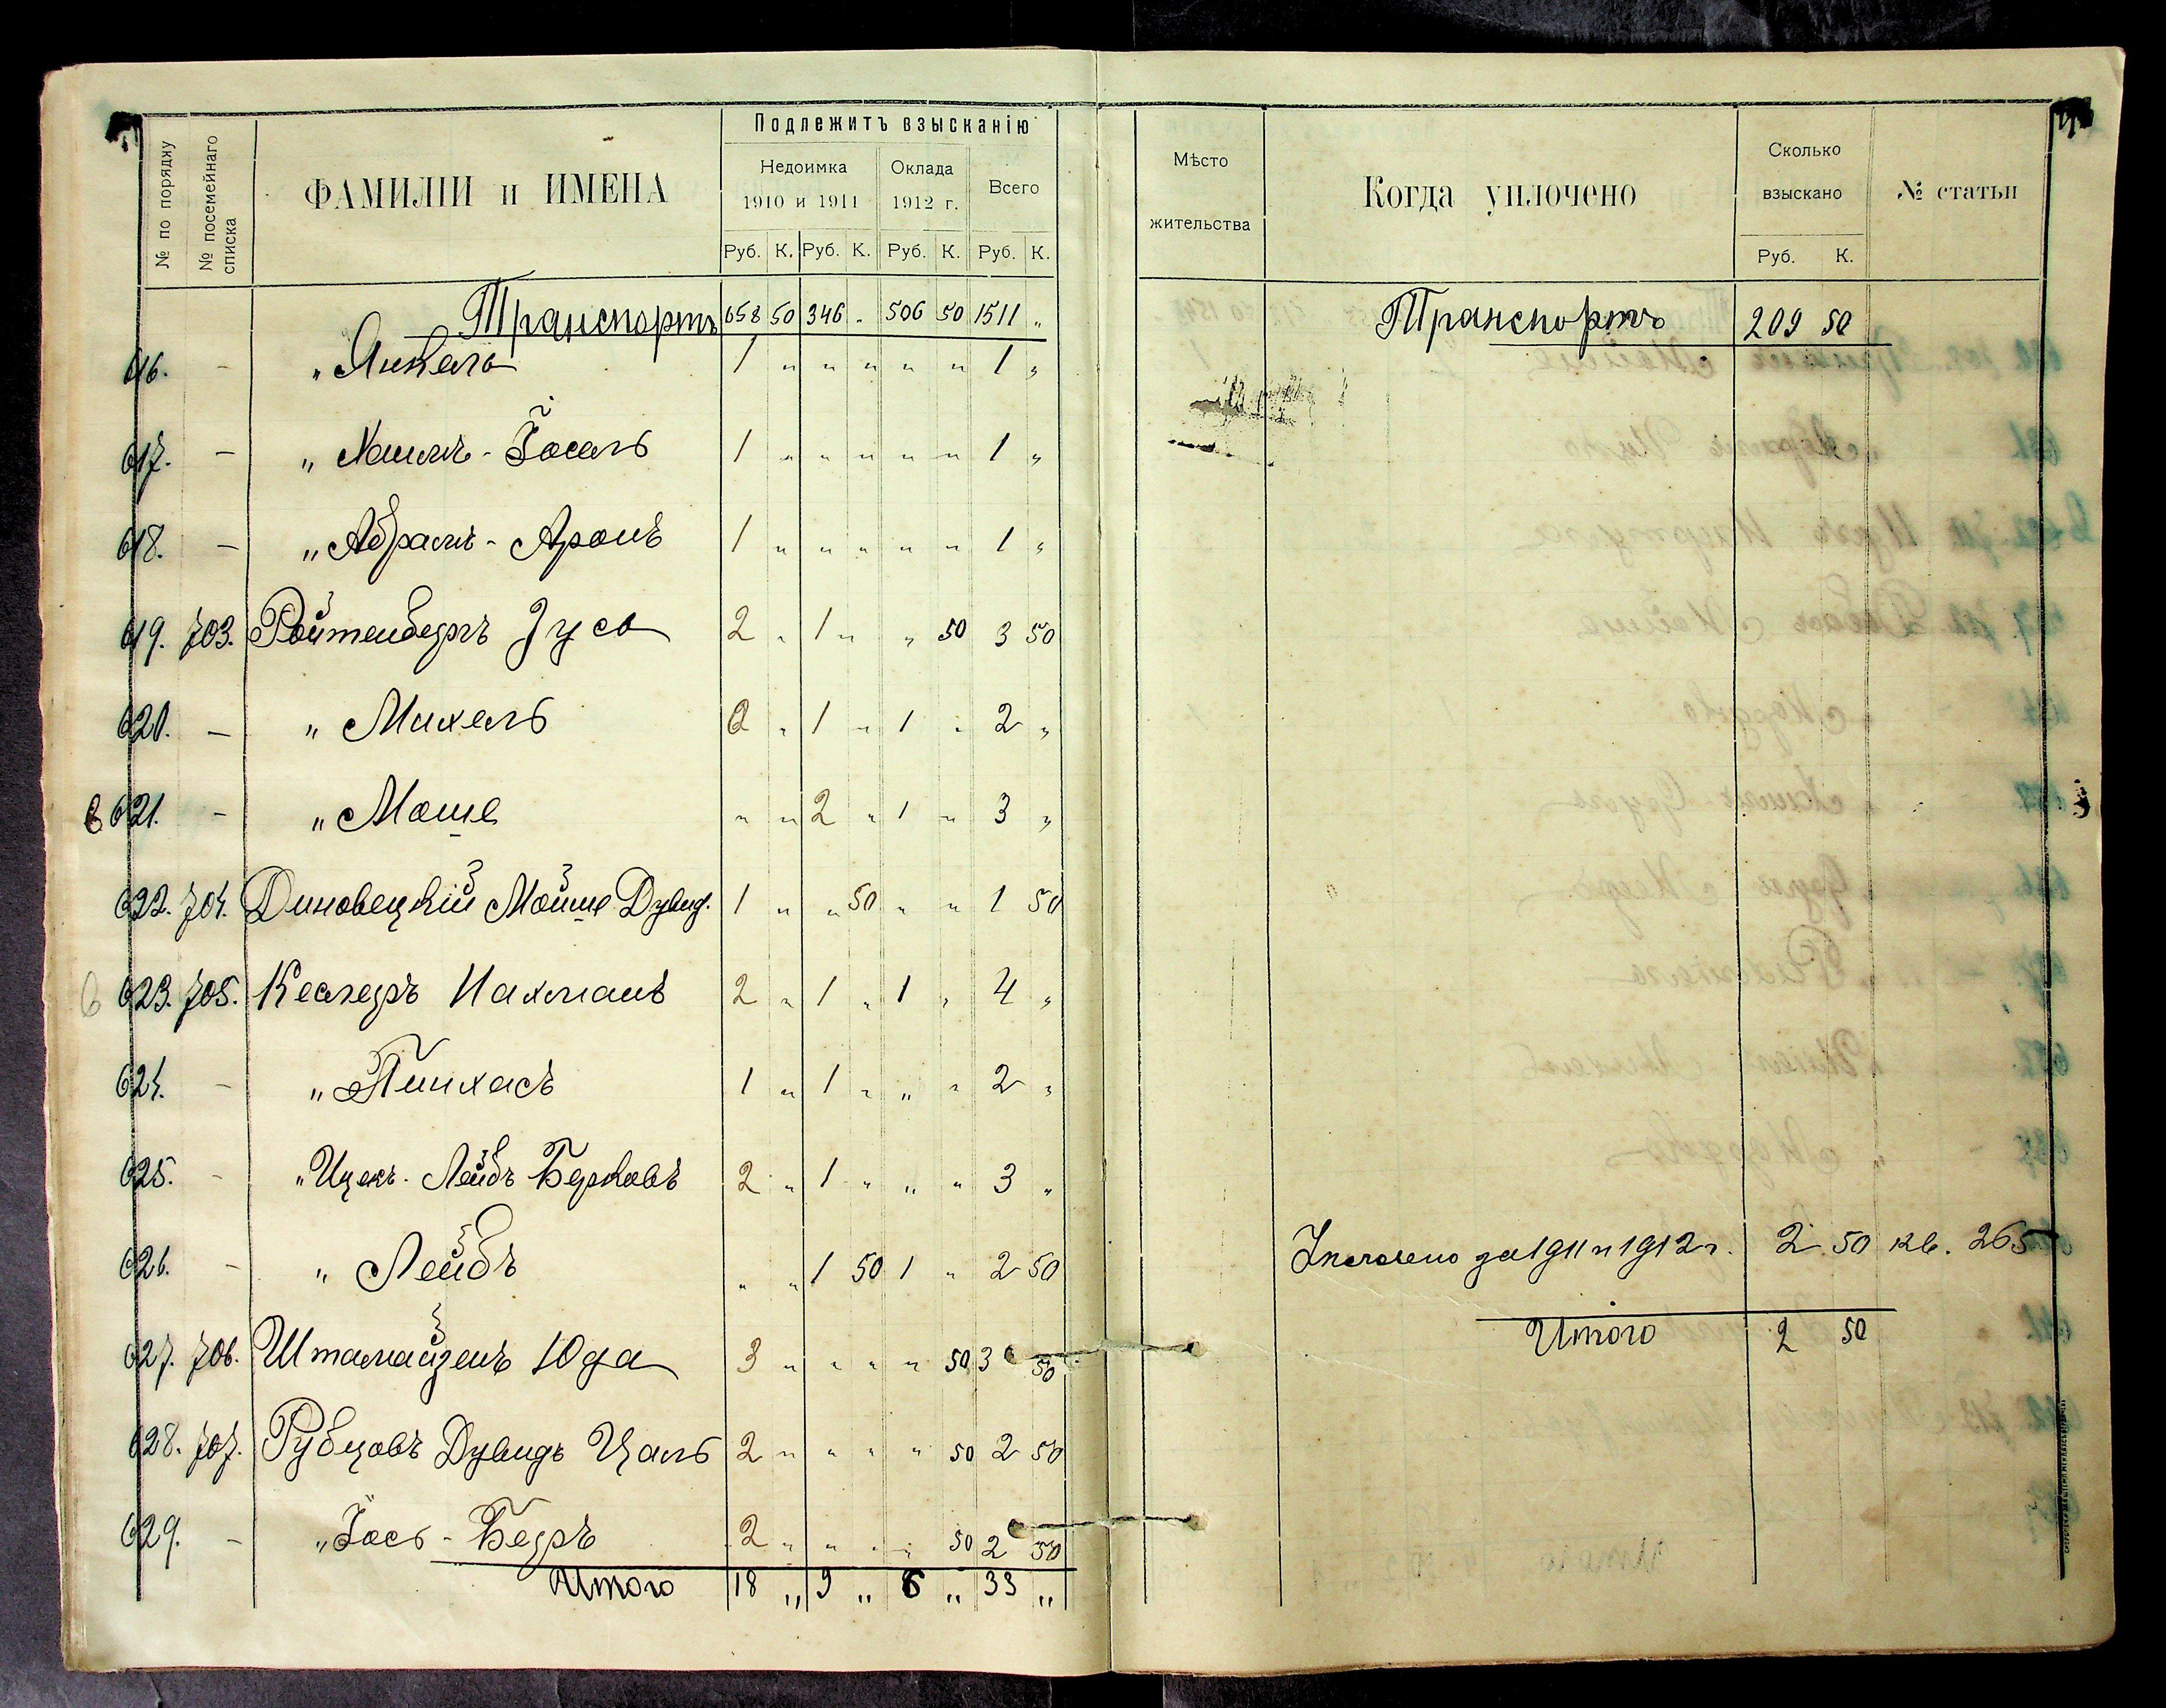 № по порядку
№ посемейнаго списка
ФАМИЛІИ и ИМЕНА
Подлежитъ взысканію
Недоимка
Оклада
Всего
1910 и 1911
1912 г.
Руб. К. Руб. К. Руб. К. Руб. К.
Мѣсто
жительства
Когда уплочено
Сколько
взыскано
Руб. К.
№ статьи
Транспортъ 658 50 346 „ 506 50 1511 „
Транспортъ 209 50
616. – „ Янкель 1 „ „ „ „ „ 1 „
617. – „ Хаимъ-Іосель 1 „ „ „ „ „ 1 „
618. – „ Абрамъ-Аронъ 1 „ „ „ „ „ 1 „
619. 703. Ройтенбергъ Зусь 2 „ 1 „ „ 50 3 50
620. – „ Михель „ 1 „ 1 „ 2 „
в 621. – „ Моше „ „ 2 „ 1 „ 3 „
622. 704. Диновецкій Мойше Дувид. 1 „ „ 50 „ „ 1 50
в 623. 705. Кеслеръ Нахманъ 2 „ 1 „ 1 „ 4 „
624. – „ Пинхасъ 1 „ 1 „ „ „ 2 „
625. – „ Ицекъ-Лейбъ Берковъ 2 „ 1 „ „ „ 3 „
626. – „ Лейбъ „ „ 1 50 1 „ 2 50
за 1911 и 1912 г. 2 50 кв. 265
627. 706. Штамайзенъ Юда 3 „ „ „ „ 50 3 50
Итого 2 50
628. 707. Рубцовъ Дувидъ Цаль 2 „ „ „ „ 50 2 50
629. – „ Іось-Беръ 2 „ „ „ „ 50 2 50
Итого 18 „ 9 „ 6 „ 33 „